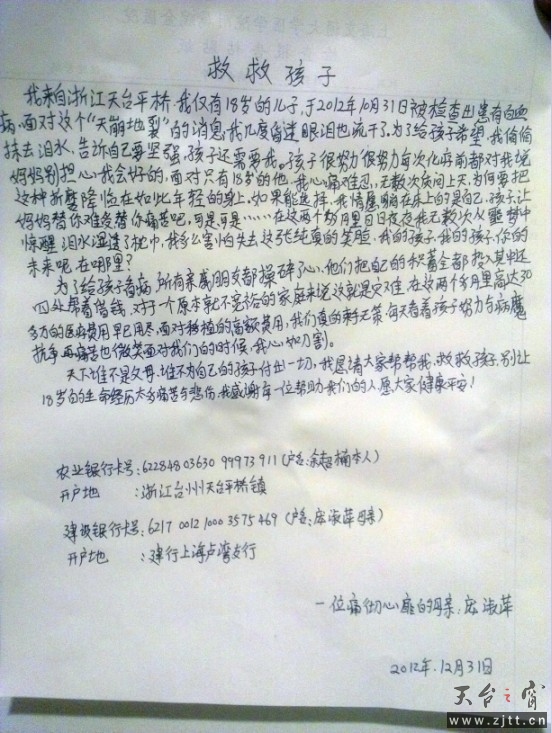 救救孩子
我来自浙江天台平桥.我仅有18岁的儿子,于2012年10月31日被检查出患有白血
病.面对这个“天崩地裂”的消息.我几度昏迷眼泪也流干了.为了给孩子希望.我偷偷
抹去泪水.告诉自己要坚强.孩子还需要我.孩子很努力很努力每次化疗前都对我说
妈妈别担心.我会好的.面对只有18岁的他.我心痛难忍.无数次质问上天.为何要把
这种折磨降临在如此年轻的身上.如果能选择.我情愿躺在床上的是自己.孩子,让
妈妈替你难受替你痛苦吧.可是可是……在这两个多月里日日夜夜我无数次从噩梦中
惊醒.泪水湿透了枕巾.我多么害怕失去这张纯真的笑脸.我的孩子.我的孩子.你的
未来呢.在哪里?
为了给孩子看病.所有亲戚朋友都操碎了心.他们把自己的积蓄全都投入其中还
四处帮着借钱.对于一个原本就不宽裕的家庭来说这就是灾难.在这两个多月里高达30
多万的医疗费用早已用尽.面对移植的高额费用.我们真的束手无策.每天看着孩子努力与病魔
抗争再痛苦也微笑面对我们的时候.我心如刀割.
天下谁不是父母.谁不为自己的孩子付出一切.我恳请大家帮帮我.救救孩子.别让
18岁的生命经历太多痛苦与悲伤.我感谢每一位帮助我们的人愿大家健康平安!
农业银行卡号:622848 03630 99973 911(户名:余智楠本人)
开户地 :浙江台州天台平桥镇
建设银行卡号:6217 0012 1000 3575 469(户名:庞淑萍母亲)
开户地 :建行上海卢湾支行
一位痛彻心扉的母亲:庞淑萍
2012年.12月31日
天台之窗
www.zjtt.cn